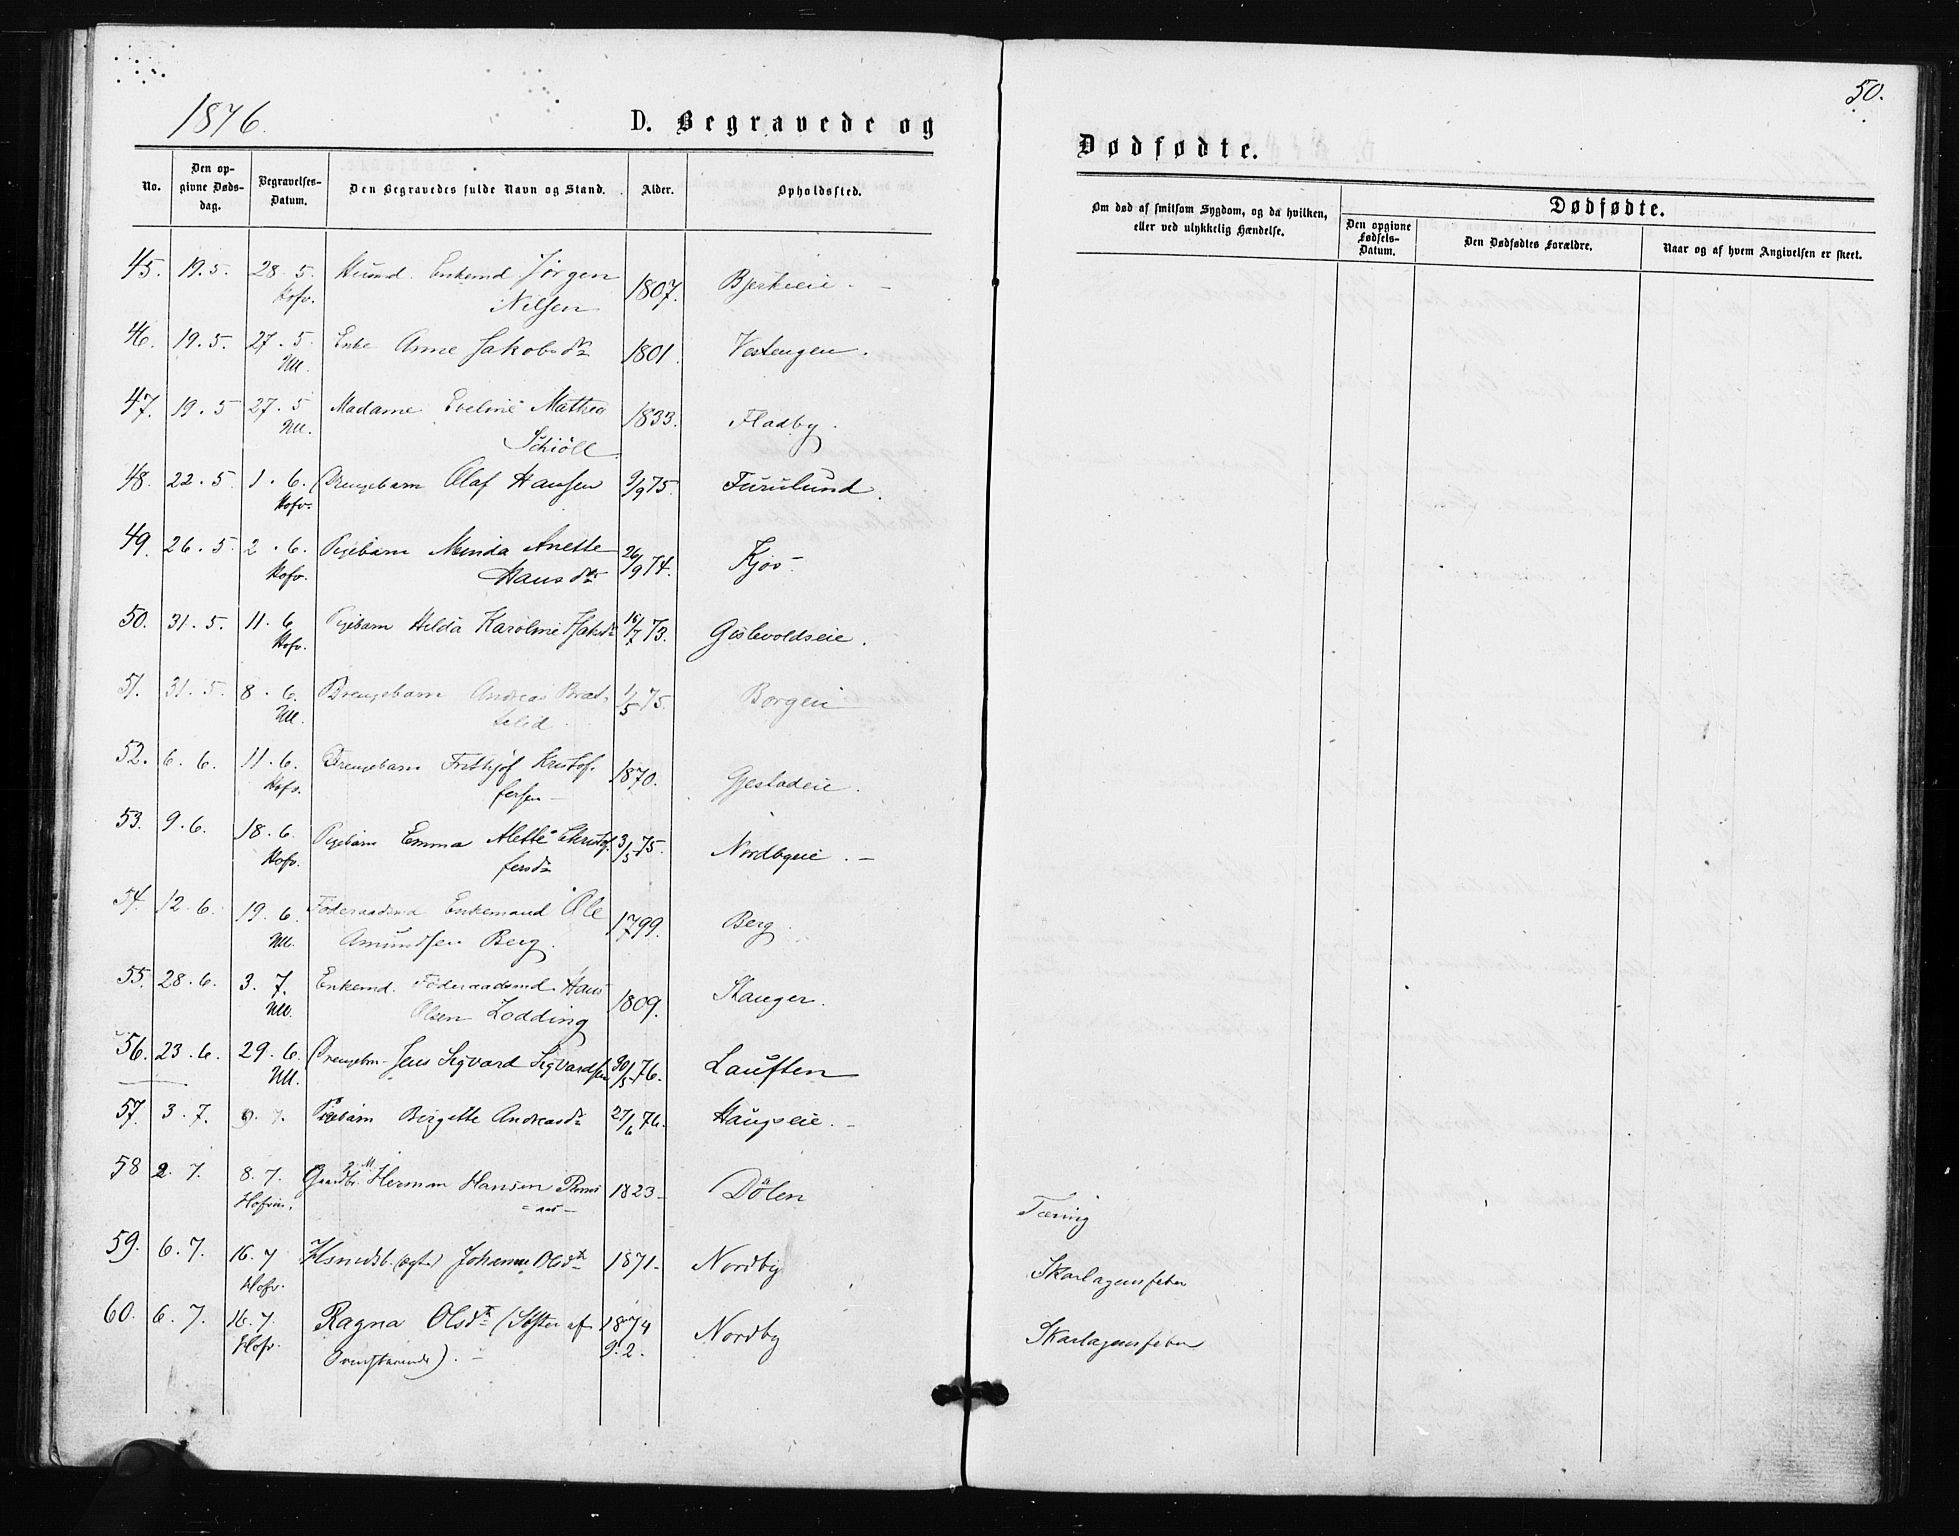 1876.
D. Begravede og
No.
Den op-
givne Døds-
dag.
Begravelses-
Datum.
Den Begravedes fulde Navn og Stand.
Alder.
Opholdssted.
45. 19. 5. 28. 5. Husmd. Enkemd Jörgen 1807. Bjerkeeie.
Hofv. Nilsen
46. 19. 5 27. 5. Enke Anne Jakobsdr 1801. Vestengen.
Ull.
47. 19. 5 27. 5 Madame Eveline Mathea 1833. Fladby.
Ull. Schiöll
48. 22. 5. 1. 6. Drengebarn Olaf Hansen 9/9 75. Furulund.
Hofv.
49. 26. 5. 2. 6. Pigebarn Minda Anette 26/9 74. Kjos
Hofv. Hansdtr
50. 31. 5. 11. 6 Pigebarn Hilda Karoline 16/7 73. Gislevoldseie.
Hofv.
51. 31. 5. 8. 6. Drengebarn Andreas Brat- 1/5 75. Borgen
Ull. lelid.
52. 6. 6. 11. 6. Drengebarn Frithjof Kristof- 1870. Gjestadeie.
Hofv. fersen
53. 9. 6. 18. 6. Pigebarn Emma Alette Kristof- 3/5 75. Nordbyeie.
Hofv. fersdr
54. 12. 6. 19. 6. Föderaadsmd Enkemand Ole 1799. Berg.
Ull. Amundsen Berg.
55. 28. 6. 3. 7. Enkemd. Föderaadsmd. Hans 1809. Hauger.
Ull. Olsen Lodding
56. 23. 6. 29. 6. Drengebn. Jens Sigvard Sigvardsen 30/5 76. Lauften
Ull.
57. 3. 7. 9. 7. Pigebarn Birgitte Andreasdr 27/6 76. Haugseie.
58 2. 7. 8. 7. Gaardbr. Herman Hansen 1823 Dölen
Hofvin.
59. 6. 7. 16. 7 Johanne Olsdtr 1871 Nordby
Hofv.
60. 6. 7. 16. 7. Ragna Olsdtr (Söster af 1874 Nordby
Hofv. Ovenstaaende). 9. 2.
50.
Dødfødte.
Om død af smitsom Sygdom, og da hvilken,
eller ved ulykkelig Hændelse.
Dødfødte.
Den opgivne
Fødsels-
Datum.
Den Dødfødtes Forældre.
Naar og af hvem Angivelsen er skeet.
Tæring
Skarlagensfeber
Skarlagensfeber